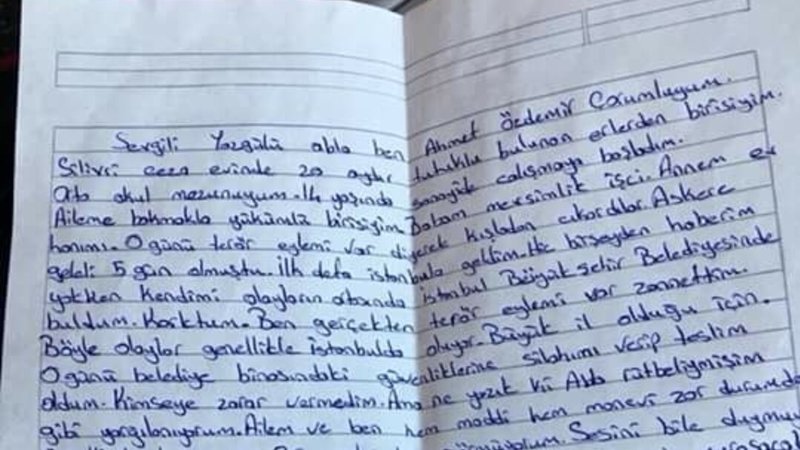 Sevgili Yazgülü abla ben Ahmet Özdemir Çorumluyum.
Silivri ceza evinde 20 aydır tutuklu bulunan erlerden birisiyim.
Orta okul mezunuyum. 14 yaşında sanayide çalışmaya başladım.
Aileme bakmakla yükümlü birisiyim. Babam mevsimlik işci. Annem ev
hanımı. O günü terör eylemi var diyerek kışladan çıkardılar. Askere
geleli 5 gün olmuştu. İlk defa istanbula geldim. Hiç birşeyden haberim
yokken kendimi olayların ortasında İstanbul Büyük Şehir Belediyesinde
buldum. Korktum. Ben gerçekten terör eylemi var zannettim.
Böyle olaylar genellikle istanbulda oluyor. Büyük il olduğu için.
O günü belediye binasındaki güvenliklerine silahımı verip teslim
oldum. Kimseye zarar vermedim. Ama ne yazık ki Asta rütbeliymişim
gibi yargılanıyorum. Ailem ve ben hem maddi hem manevi zor durumda
Sesini bile duymu